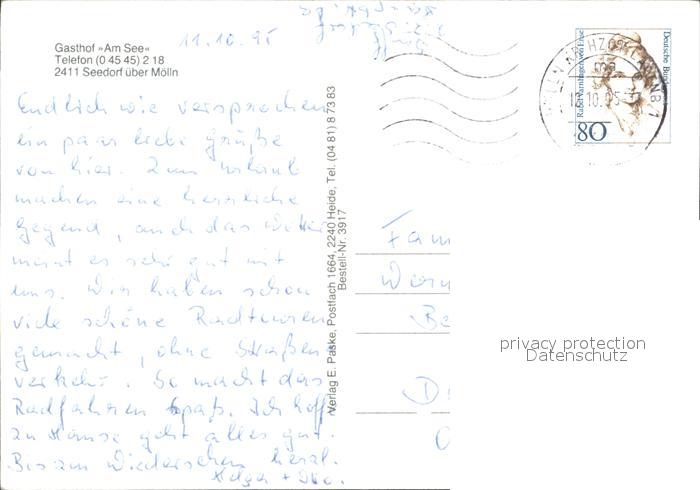 11.10.95
Gasthof »Am See«
Telefon (0 45 45) 2 18
2411 Seedorf über Mölln
Endlich wie versprochen
ein paar liebe Grüße
von hier. Zum Urlaub
machen eine herrliche
Gegend, auch das Wetter
meint es sehr gut mit
uns. Wir haben schon
viele schöne Radtouren
gemacht, ohne Straßen
verkehr. So macht das
Radfahren Spaß. Ich hoffe
zu Hause geht alles gut.
Bis zum Wiedersehen herzl.
Helga +
Verlag E. Paske, Postfach 1664, 2240 Heide, Tel. (04 81) 8 73 83
Bestell-Nr. 3917
Deutsche Bundespost
Rahel Varnhagen von Ense
80
Fam
privacy protection
Datenschutz